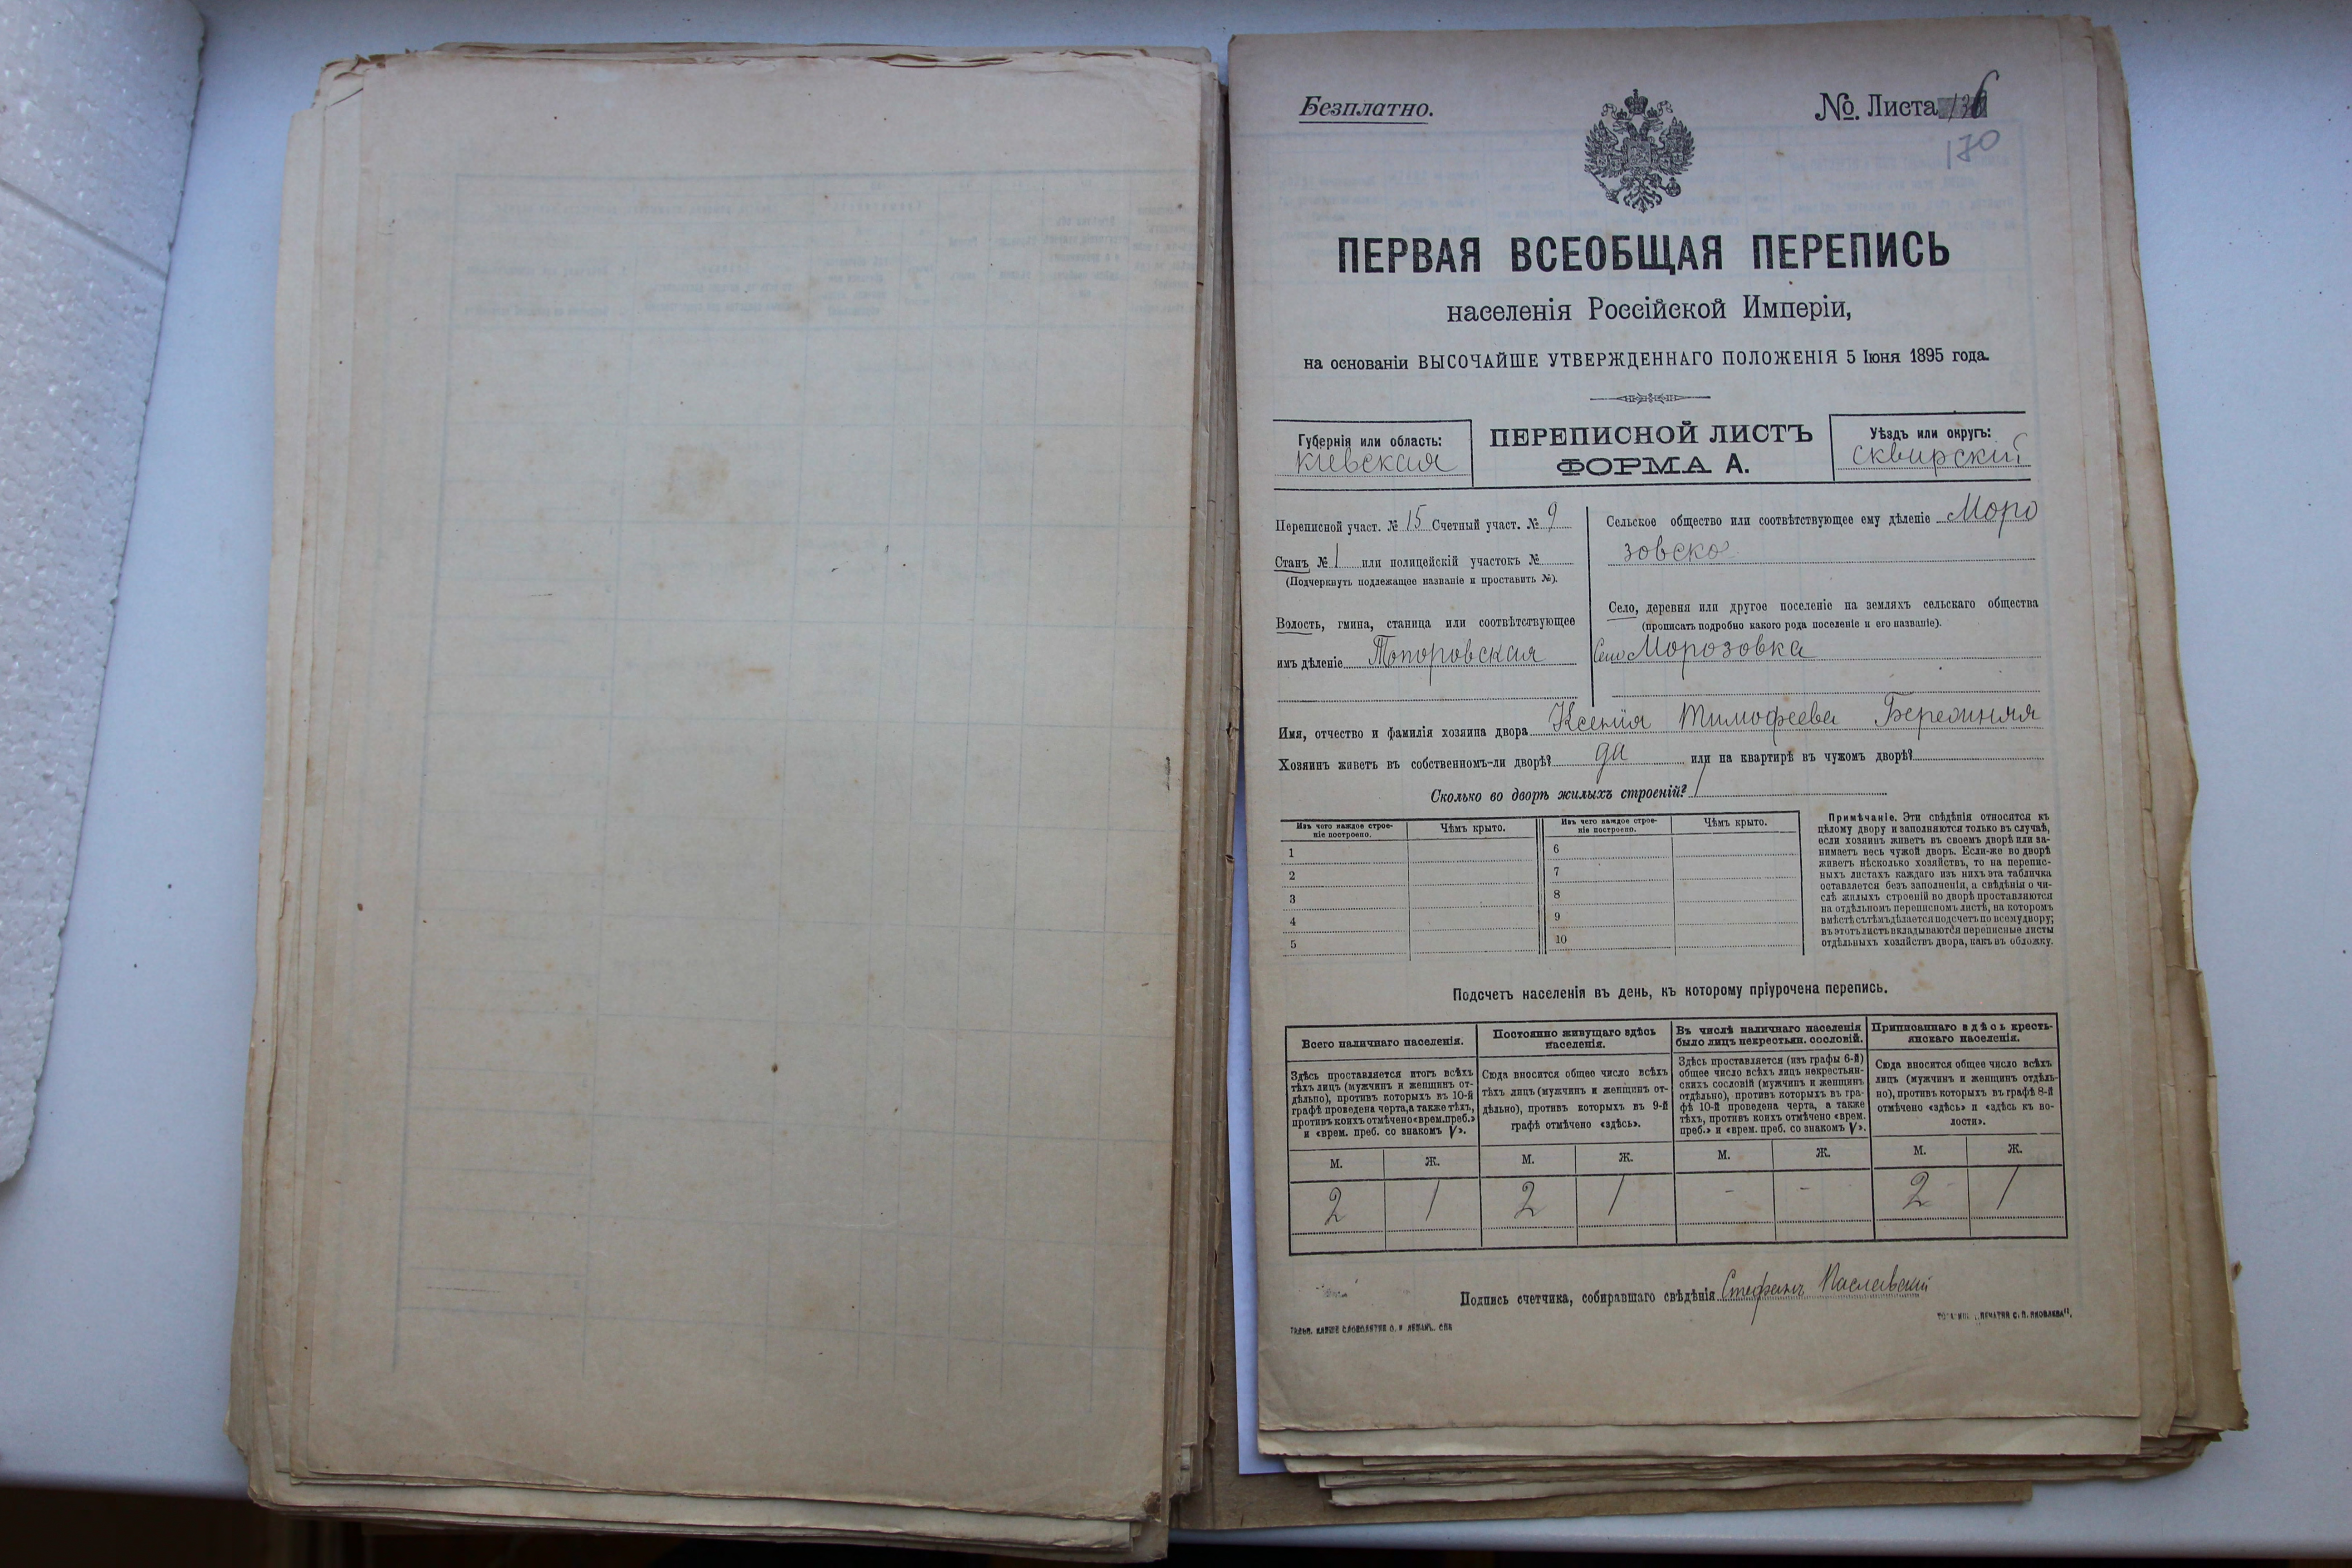 Безплатно.
№. Листа 136
170
ПЕРВАЯ ВСЕОБЩАЯ ПЕРЕПИСЬ
населенія Россійской Имперіи,
на основаніи ВЫСОЧАЙШЕ УТВЕРЖДЕННАГО ПОЛОЖЕНІЯ 5 Іюня 1895 года.
Губернія или область:
Кіевская
ПЕРЕПИСНОЙ ЛИСТЪ
ФОРМА А.
Уѣздъ или округъ:
Сквирскій
Переписной участ. № 15 Счетный участ. № 9
Станъ № 1 или полицейскій участокъ №
(Подчеркнуть подлежащее названіе и проставить №).
Волость, гмина, станица или соотвѣтствующее
имъ дѣленіе Топоровская
Сельское общество или соотвѣтствующее ему дѣленіе Моро
зовское
Село, деревня или другое поселеніе на земляхъ сельскаго общества
(прописать подробно какого рода поселеніе и его названіе).
Село Морозовка
Имя, отчество и фамилія хозяина двора Ксенія Тимофеева
Хозяинъ живетъ въ собственномъ-ли дворѣ? да или на квартирѣ въ чужомъ дворѣ?
Сколько во дворѣ жилыхъ строеній? 1
Изъ чего каждое строе-
ніе построено.
Чѣмъ крыто.
Изъ чего каждое строе-
ніе построено.
Чѣмъ крыто.
1
2
3
4
5
6
7
8
9
10
Примѣчаніе. Эти свѣдѣнія относятся къ
цѣлому двору и заполняются только въ случаѣ,
если хозяинъ живетъ въ своемъ дворѣ или за-
нимаетъ весь чужой дворъ. Если-же во дворѣ
живетъ нѣсколько хозяйствъ, то на перепис-
ныхъ листахъ каждаго изъ нихъ эта табличка
оставляется безъ заполненія, а свѣдѣнія о чи-
слѣ жилыхъ строеній во дворѣ проставляются
на отдѣльномъ переписномъ листѣ, на которомъ
вмѣстѣ съ тѣмъ дѣлается подсчетъ по всему двору;
въ этотъ листъ вкладываются переписные листы
отдѣльныхъ хозяйствъ двора, какъ въ обложку.
Подсчетъ населенія въ день, къ которому пріурочена перепись.
Всего наличнаго населенія.
Здѣсь проставляется итогъ всѣхъ
тѣхъ лицъ (мужчинъ и женщинъ от-
дѣльно), противъ которыхъ въ 10-й
графѣ проведена черта, а также тѣхъ,
противъ коихъ отмѣчено «врем. преб.»
и «врем. преб. со знакомъ V».
Постоянно живущаго здѣсь
населенія.
Сюда вносится общее число всѣхъ
тѣхъ лицъ (мужчинъ и женщинъ от-
дѣльно), противъ которыхъ въ 9-й
графѣ отмѣчено «здѣсь».
Въ числѣ наличнаго населенія
было лицъ некрестьян. сословій.
Здѣсь проставляется (изъ графы 6-й)
общее число всѣхъ лицъ некрестьян-
скихъ сословій (мужчинъ и женщинъ
отдѣльно), противъ которыхъ въ гра-
фѣ 10-й проведена черта, а также
тѣхъ, противъ коихъ отмѣчено «врем.
преб.» и «врем. преб. со знакомъ V».
Приписаннаго здѣсь кресть-
янскаго населенія.
Сюда вносится общее число всѣхъ
лицъ (мужчинъ и женщинъ отдѣль-
но), противъ которыхъ въ графѣ 8-й
отмѣчено «здѣсь» и «здѣсь къ во-
лости».
М. Ж. М. Ж. М. Ж. М. Ж.
2 1 2 1 - - 2 1
Подпись счетчика, собиравшаго свѣдѣнія Стефанъ Паславскій